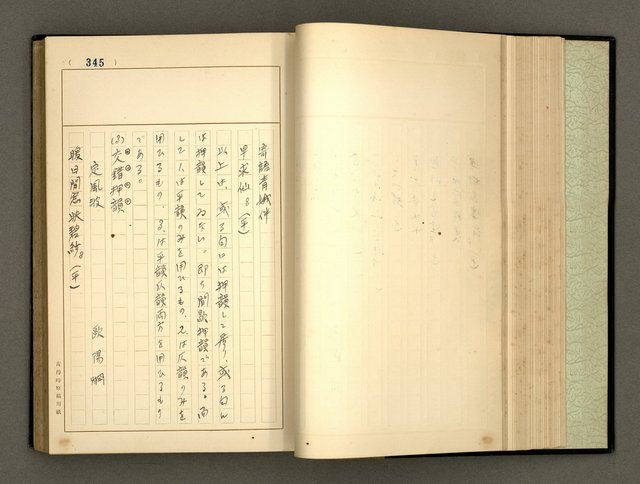 (345)
寄語青娥伴
早求仙。(平)
以上は、或る句には押韻して居り、或る句に
は押韻してゐない。即ち間歇押韻である。而
して1は平韻のみを用ひるもの、2は仄韻のみを
用ひるもの、3は平韻仄韻両方を用ひるもの
である。
(3)交錯押韻
定風波
欧陽炯
暖日閒窓映碧紗。(平)
黄得時原稿用紙